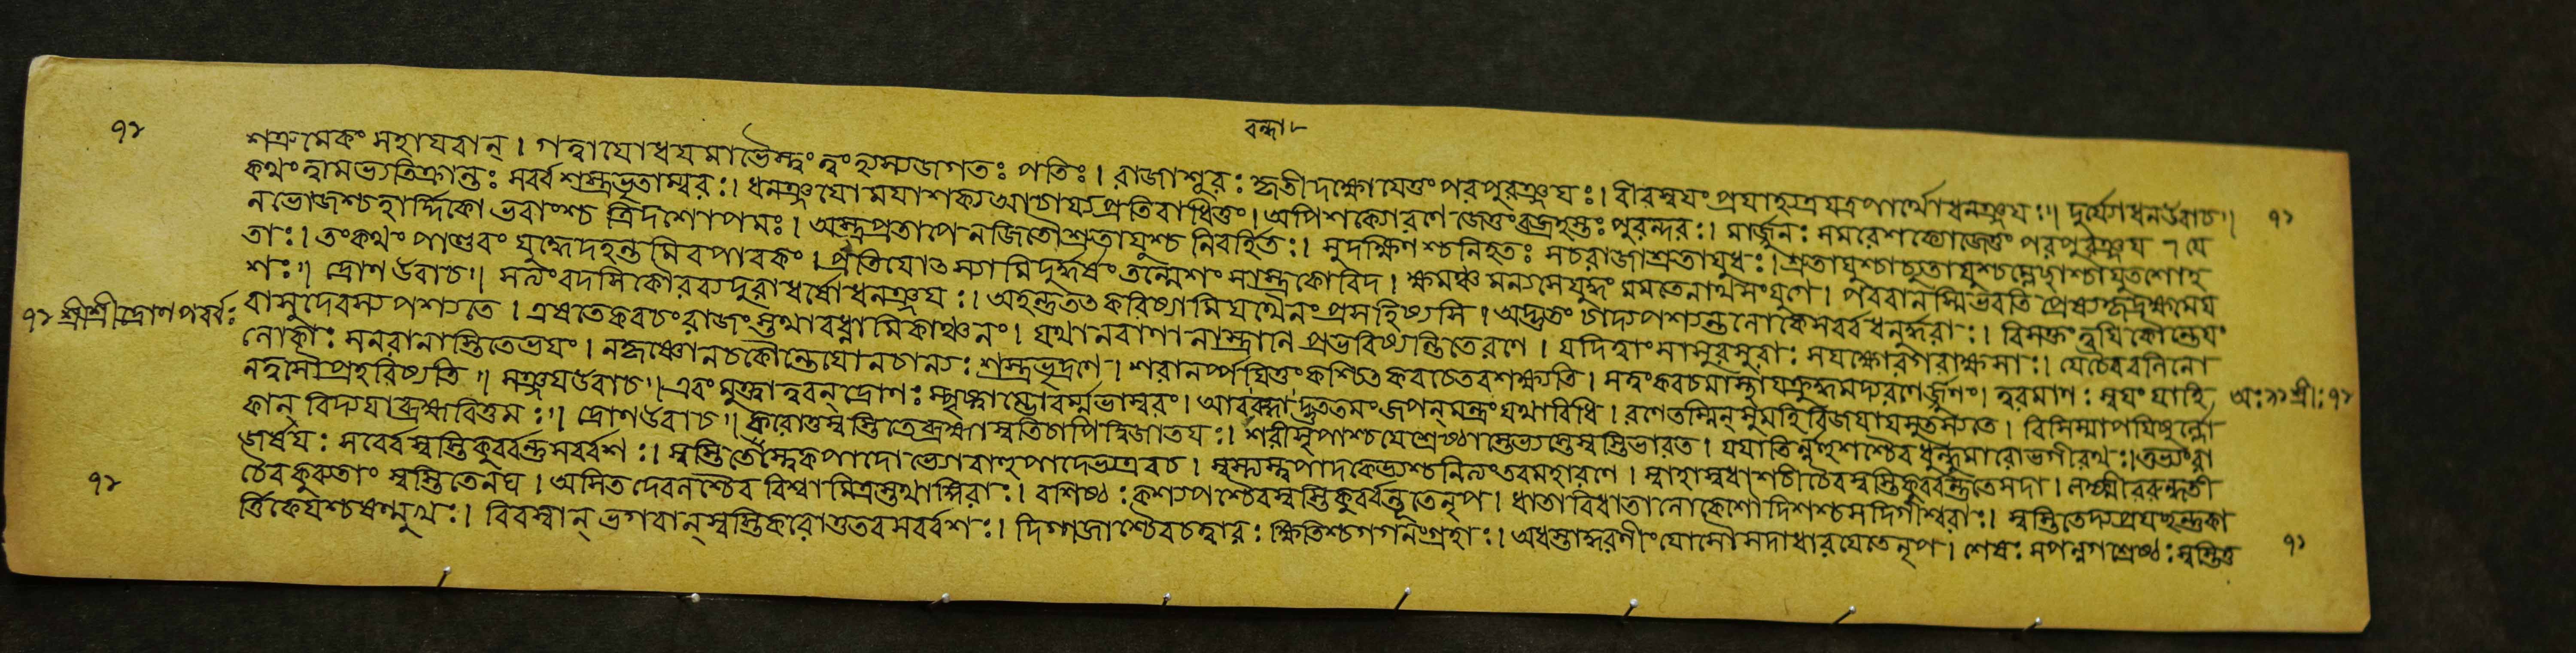 ৭২
বন্ধা
শত্রুমেকং সহাযবান্ । গত্বাযোধযমাভৈস্ত্বং ত্বংহ্যস্যজগতঃ পতিঃ । রাজাশূরঃ কৃতীদক্ষোযেতুং পরপুরঞ্জযঃ । বীরস্বযং প্রযাহ্যত্রযত্রপার্থোধনঞ্জযঃ ॥ দুর্যোধনউবাচ ॥ ৭২
কথংত্বামভ্যতিক্রান্তঃ সর্ব্বশস্ত্রভৃতাম্বরঃ । ধনঞ্জযোমযাশক্য আচার্য্যপ্রতিবাধিতুং । অপিশক্যোরণে জেতুংবজ্রহস্তঃ পুরন্দরঃ । নার্জ্জুনঃ সমরেশক্যোজেতুং পরপুরঞ্জয ৷ যে
নভোজশ্চহার্দ্দিক্যো ভবাংশ্চ ত্রিদশোপমঃ । অস্ত্রপ্রতাপেনজিতৌশ্রুতাযুশ্চ নিবর্হিতঃ । সুদক্ষিণ শ্চনিহতঃ সচরাজাশ্রুতাযুধঃ । শ্রুতাযুশ্চাচ্যুতাযুশ্চম্লেছাশ্চাযুতশোহ
তাঃ । তংকথং পাণ্ডবং যুদ্ধেদহন্তমিবপাবকং । প্রতিযোৎস্যামিদুর্দ্ধর্ষং তন্মেশংসাস্ত্রকোবিদ । ক্ষমঞ্চ মন্যসেযুদ্ধং মমতেনাথসংযুগে । পরবানস্মিভবতি প্রেষ্যকৃদ্রক্ষমেয
শঃ ॥ দ্রোণ উবাচ ॥ সত্যংবদসিকৌরব্য দুরাধর্ষোধনঞ্জযঃ । অহন্তুতৎ করিষ্যামিযথৈনং প্রসহিষ্যসি । অদ্ভুতং চাদ্যপশ্যন্তুলোকেসর্ব্বধনুর্দ্ধরাঃ । বিষক্তং ত্বযিকৌন্তেযং
৭২ শ্রীশ্রীদ্রোণপর্ব্বঃ বাসুদেবস্য পশ্যতে । এষতেকবচংরাজংস্তথাবধ্নামিকাঞ্চনং । যথানবাণানাস্ত্রানি প্রভবিষ্যন্তিতেরণে । যদিত্বাংসাসুরসুরাঃ সযক্ষোরগরাক্ষসাঃ । যোধৈববলিনো
লোকাঃ সনরানাস্তিতেভযং । নকৃষ্ণোনচকৌন্তেযোনচান্যঃ শস্ত্রভৃদ্রণে । শরানর্পযিতুংকশ্চিৎ কবচেতবশক্ষ্যতি । সত্বংকবচমাস্থাযক্রুদ্ধমদ্যরণের্জ্জুনং । ত্বরমাণঃ স্বযং যাহি অঃ ৯২ শ্রীঃ ৭২
নত্বসৌপ্রহরিষ্যতি ॥ সঞ্জযউবাচ ॥ এবংমুক্ত্বাত্বরন্ দ্রোণঃ স্পৃষ্ট্বাম্ভোবর্ম্মভাস্বরং । আববন্ধাদ্ভুততমংজপন্মন্ত্রংযথাবিধি । রণেতস্মিন্ সুমহিবিজযাযসুতস্যতে । বিসিস্মাপযিষুর্লো
কান্ বিদ্যযাব্রহ্মবিত্তমঃ ॥ দ্রোণউবাচ ॥ করোতুস্বস্তিতেব্রহ্মাস্বস্তিচাপিদ্বিজাতযঃ । শরীসৃপাশ্চযেশ্রেষ্ঠাস্তেভ্যস্তেস্বস্তিভারত । যযাতির্নহুশশ্চৈব ধুন্ধুমারোভগীরথঃ । তুভ্যংরা
জর্ষযঃ সর্ব্বেস্বস্তিকুর্ব্বন্তুসর্ব্বশঃ । স্বস্তিতেঽস্ত্বেকপাদেভ্যোবহুপাদেভ্যএবচ । স্বস্ত্যস্ত্বপাদকেভ্যশ্চনিত্যংতবমহারণে । স্বাহাস্বধাশচীচৈবস্বস্তিকুর্ব্বন্তুতেসদা । লক্ষ্মীররুন্ধতী
৭২ চৈবকুরুতাং স্বস্তিতেনঘ । অসিতদেবলশ্চৈব বিশ্বামিত্রস্তথাঙ্গিরাঃ । বশিষ্ঠঃ কশ্যপশ্চৈবস্বস্তিকুর্ব্বন্তুতেনৃপ । ধাতাবিধাতালোকেশোদিশশ্চসদিগীশ্বরাঃ । স্বস্তিতেদ্যপ্রযচ্ছন্তুকা
র্ত্তিকেযশ্চষণ্মুখঃ । বিবস্বান্ ভগবান্স্বস্তিকরোতুতবসর্ব্বশঃ । দিগ্গজাশ্চৈবচত্বারঃ ক্ষিতিশ্চগগনংগ্রহাঃ । অধস্তাদ্ধরণীংযোসৌসদাধারযেতেনৃপ । শেষঃ সপন্নগশ্রেষ্ঠঃ স্বস্তিতু ৭২